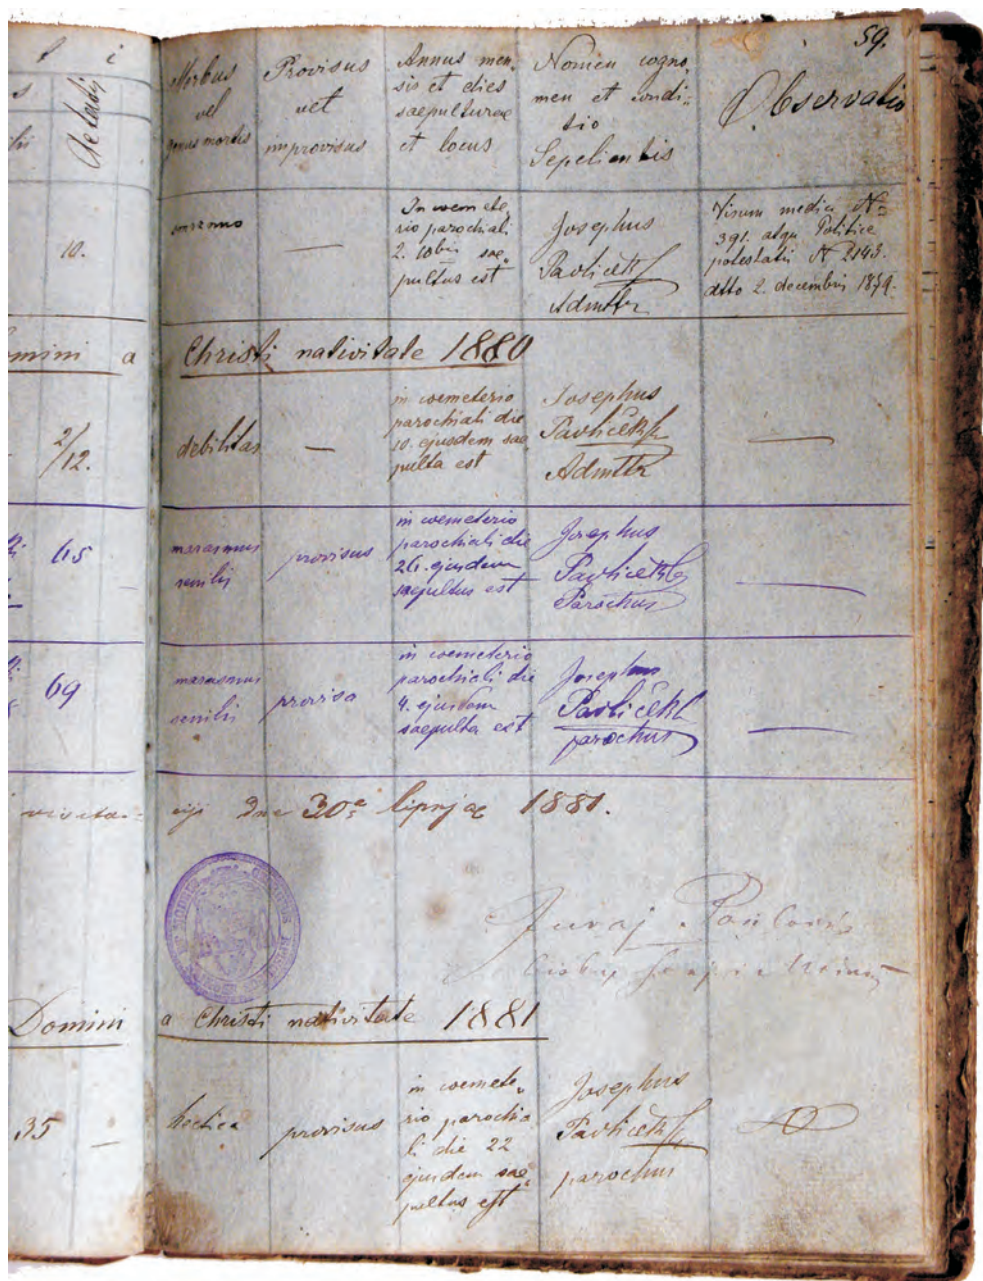 59.
Morbus
vel
genus mortis
Provisus
vel
improvisus
Annus men„
sis et dies
saepulturae
et locus
Nomen cogno„
men et condi„
tio
Sepelientis
Observatio
Aetatis
10.
—
In coemete
rio parochiali
2. 10bris sae„
pultus est
Josephus
Pavliček
Admttr
Visum medici No
391. atque Politice
potestatis No 2143.
ddto 2. decembris 1879.
omini a
Christi nativitate 1880
2/12.
debilitas
—
in coemeterio
parochiali die
10. ejusdem sae
pulta est
Josephus
Pavliček
Admttr
—
65
marasmus
senilis
provisus
in coemeterio
parochiali die
26. ejusdem
saepultus est
Josephus
Pavliček
Parochus
—
69
marasmus
senilis
provisa
in coemeterio
parochiali die
4. ejusdem
saepulta est
Josephus
Pavliček
parochus
—
dne 30a lipnja 1881.
Juraj
Domini
a Christi nativitate 1881
35 —
hectica
provisus
in coemete„
rio parochia
li die 22
ejusdem sae„
pultus est
Josephus
Pavliček
parochus